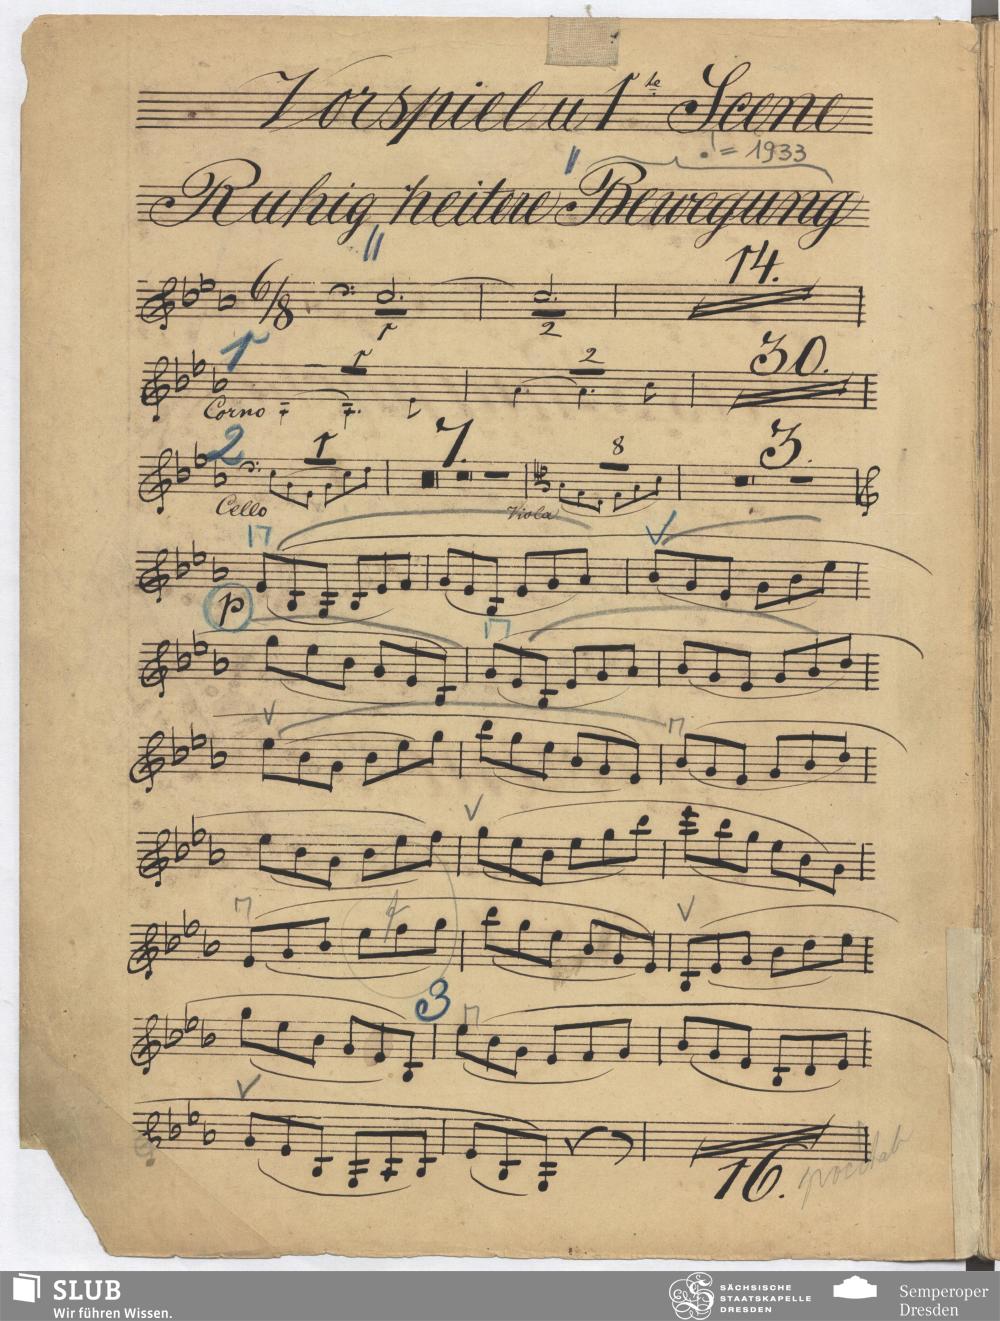 Vorspiel u 1te Scene
♩. = 1933
Ruhig heitere Bewegung
6/8 14.
1 2
1 1 2 30.
Corno
2 1 7. 8 3.
Cello Viola
p
3
16.
SLUB
Wir führen Wissen.
SÄCHSISCHE
STAATSKAPELLE
DRESDEN
Semperoper
Dresden